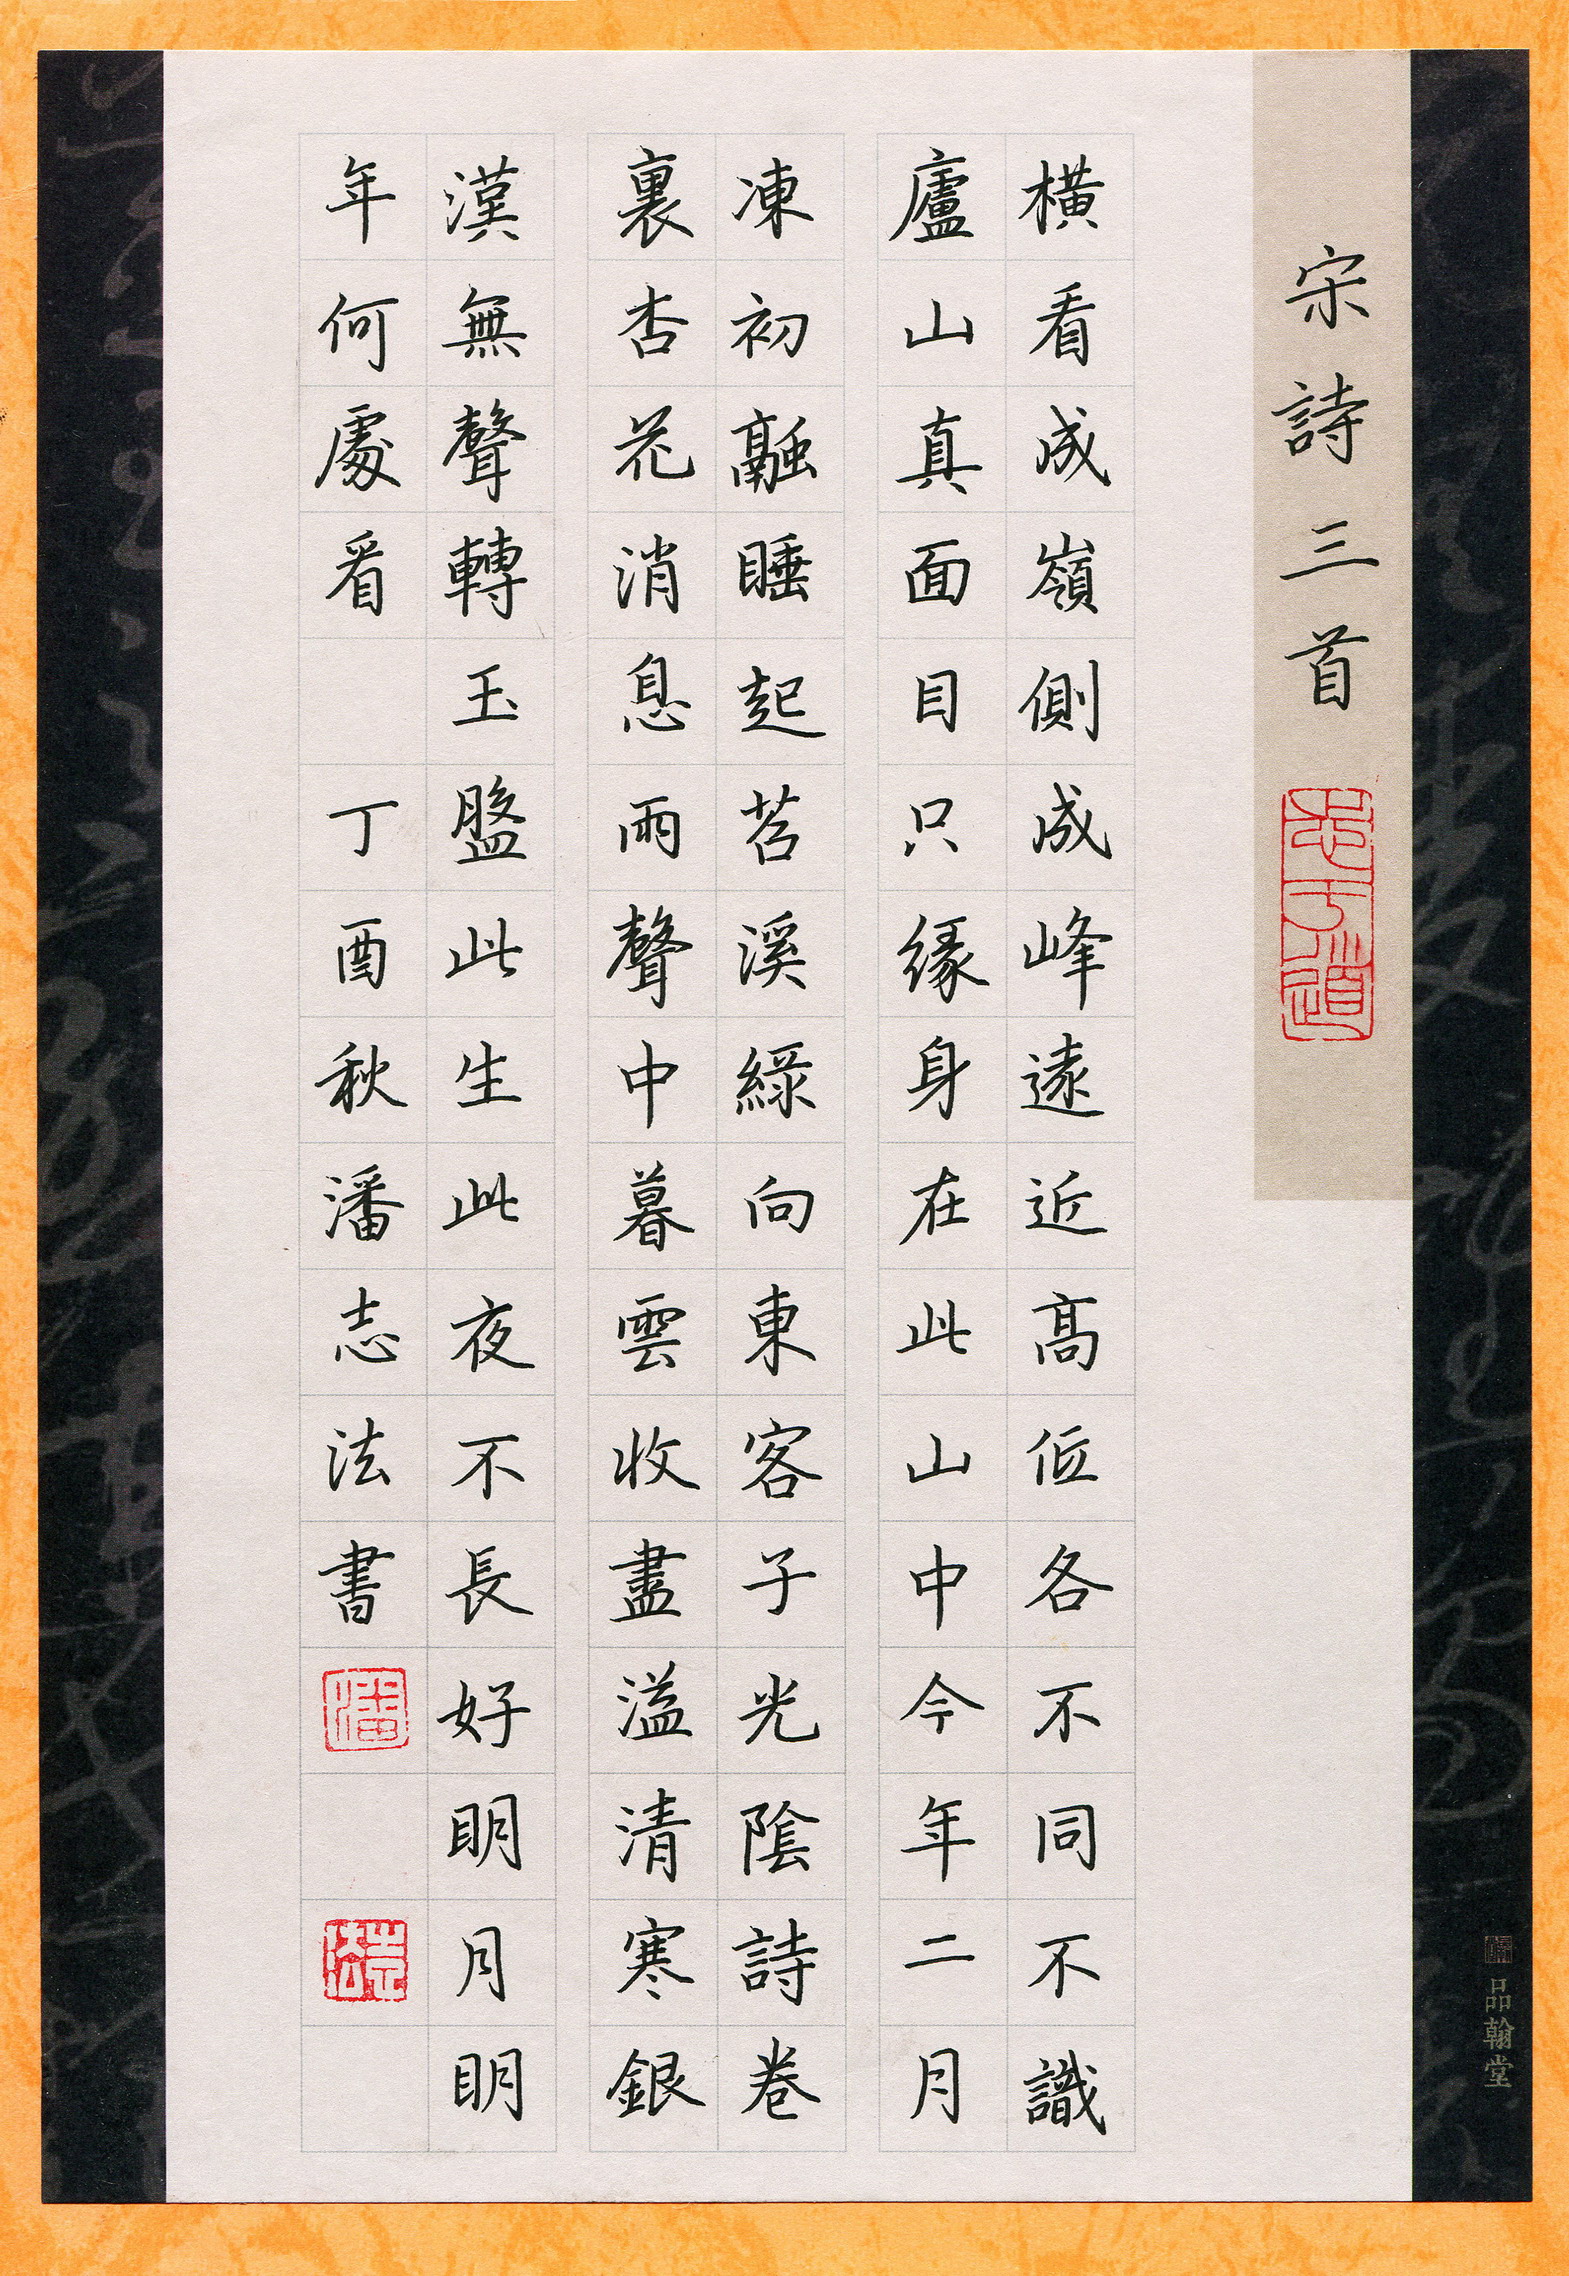 宋詩三首
志于道
橫看成嶺側成峰遠近高低各不同不識
廬山真面目只緣身在此山中今年二月
凍初融睡起苕溪綠向東客子光陰詩卷
裏杏花消息雨聲中暮雲收盡溢清寒銀
漢無聲轉玉盤此生此夜不長好明月明
年何處看 丁酉秋潘志法書
潘
志法
品翰堂